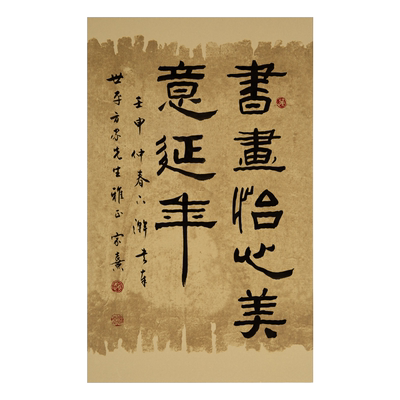 書畫怡心美
意延年
壬申仲春下澣書奉
世平方家先生雅正 家熹